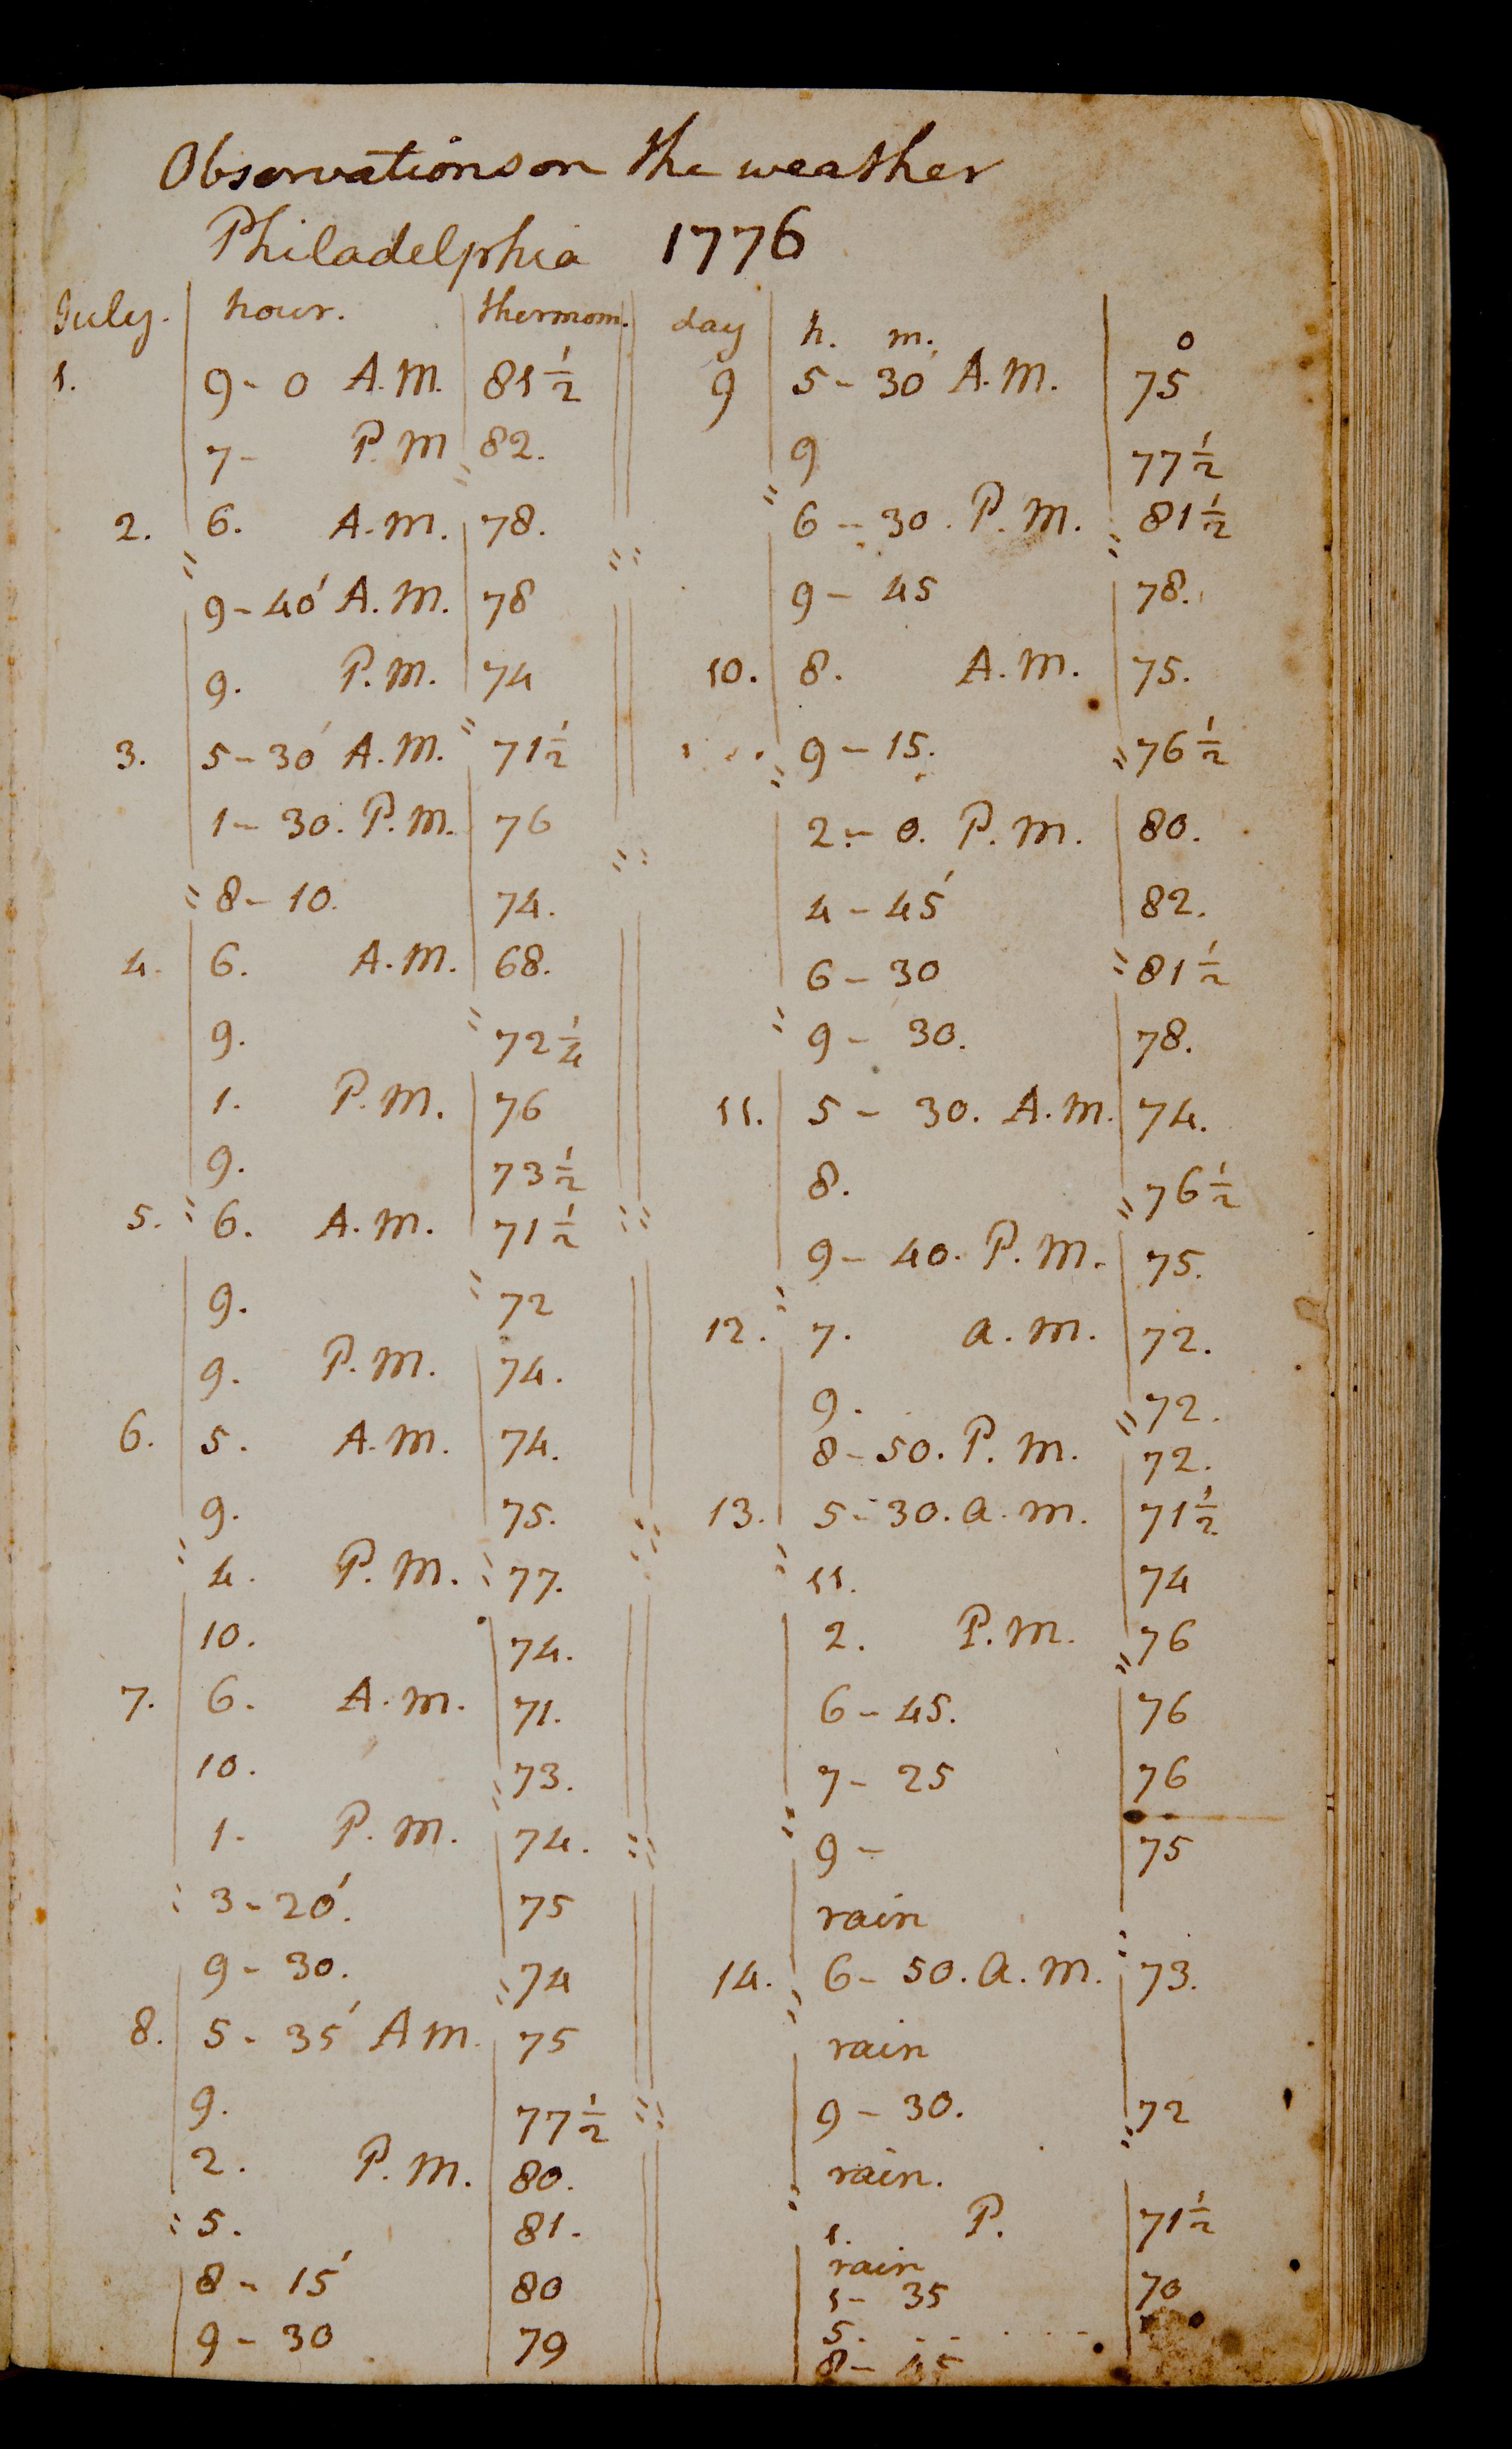 Observations on the weather
Philadelphia 1776
July. hour. thermom.
1. 9-0 A.M. 81 1/2
7- P.M 82.
2. 6. A.M. 78.
9-40' A.M. 78
9. P.M. 74
3. 5-30' A.M. 71 1/2
1-30. P.M. 76
8-10. 74.
4. 6. A.M. 68.
9. 72 1/4
1. P.M. 76
9. 73 1/2
5. 6. A.M. 71 1/2
9. 72
9. P.M. 74.
6. 5. A.M. 74.
9. 75.
4. P.M. 77.
10. 74.
7. 6. A.M. 71.
10. 73.
1. P.M. 74.
3-20'. 75
9-30. 74
8. 5-35' A M. 75
9. 77 1/2
2. P.M. 80.
5. 81.
8-15' 80
9-30 79
day h. m. o
9 5-30' A.M. 75
9 77 1/2
6-30. P.M. 81 1/2
9-45 78.
10. 8. A.M. 75.
9-15. 76 1/2
2-0. P.M. 80.
4-45' 82.
6-30 81 1/2
9-30. 78.
11. 5-30. A.M. 74.
8. 76 1/2
9-40. P.M. 75.
12. 7. a.m. 72.
9. 72.
8-50. P.M. 72.
13. 5-30. a.m. 71 1/2
11. 74
2. P.M. 76
6-45. 76
7-25 76
9- 75
rain
14. 6-50. a.m. 73.
rain
9-30. 72
rain.
1. P. 71 1/2
rain
1-35 70
5.
8-45